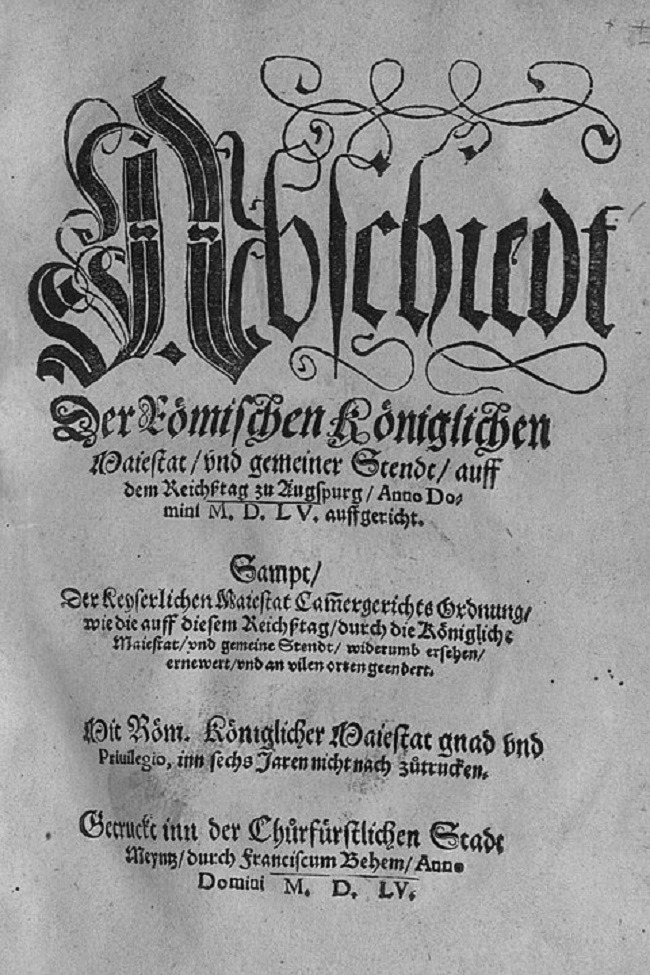 Abschiedt
Der Römischen Königlichen
Maiestat/ vnd gemeiner Stendt/ auff
dem Reichßtag zu Augspurg/ Anno Do⸗
mini M. D. LV. auffgericht.
Sampt/
Der Keyserlichen Maiestat Cam̅ergerichts Ordnung/
wie die auff diesem Reichßtag/ durch die Königliche
Maiestat/ vnd gemeine Stendt/ widerumb ersehen/
ernewert/ vnd an vilen orten geendert.
Mit Röm. Königlicher Maiestat gnad vnd
Priuilegio, inn sechs Jaren nicht nach zůtrucken.
Getruckt inn der Chůrfürstlichen Stadt
Meyntz/ durch Franciscum Behem/ Anno
Domini M. D. LV.